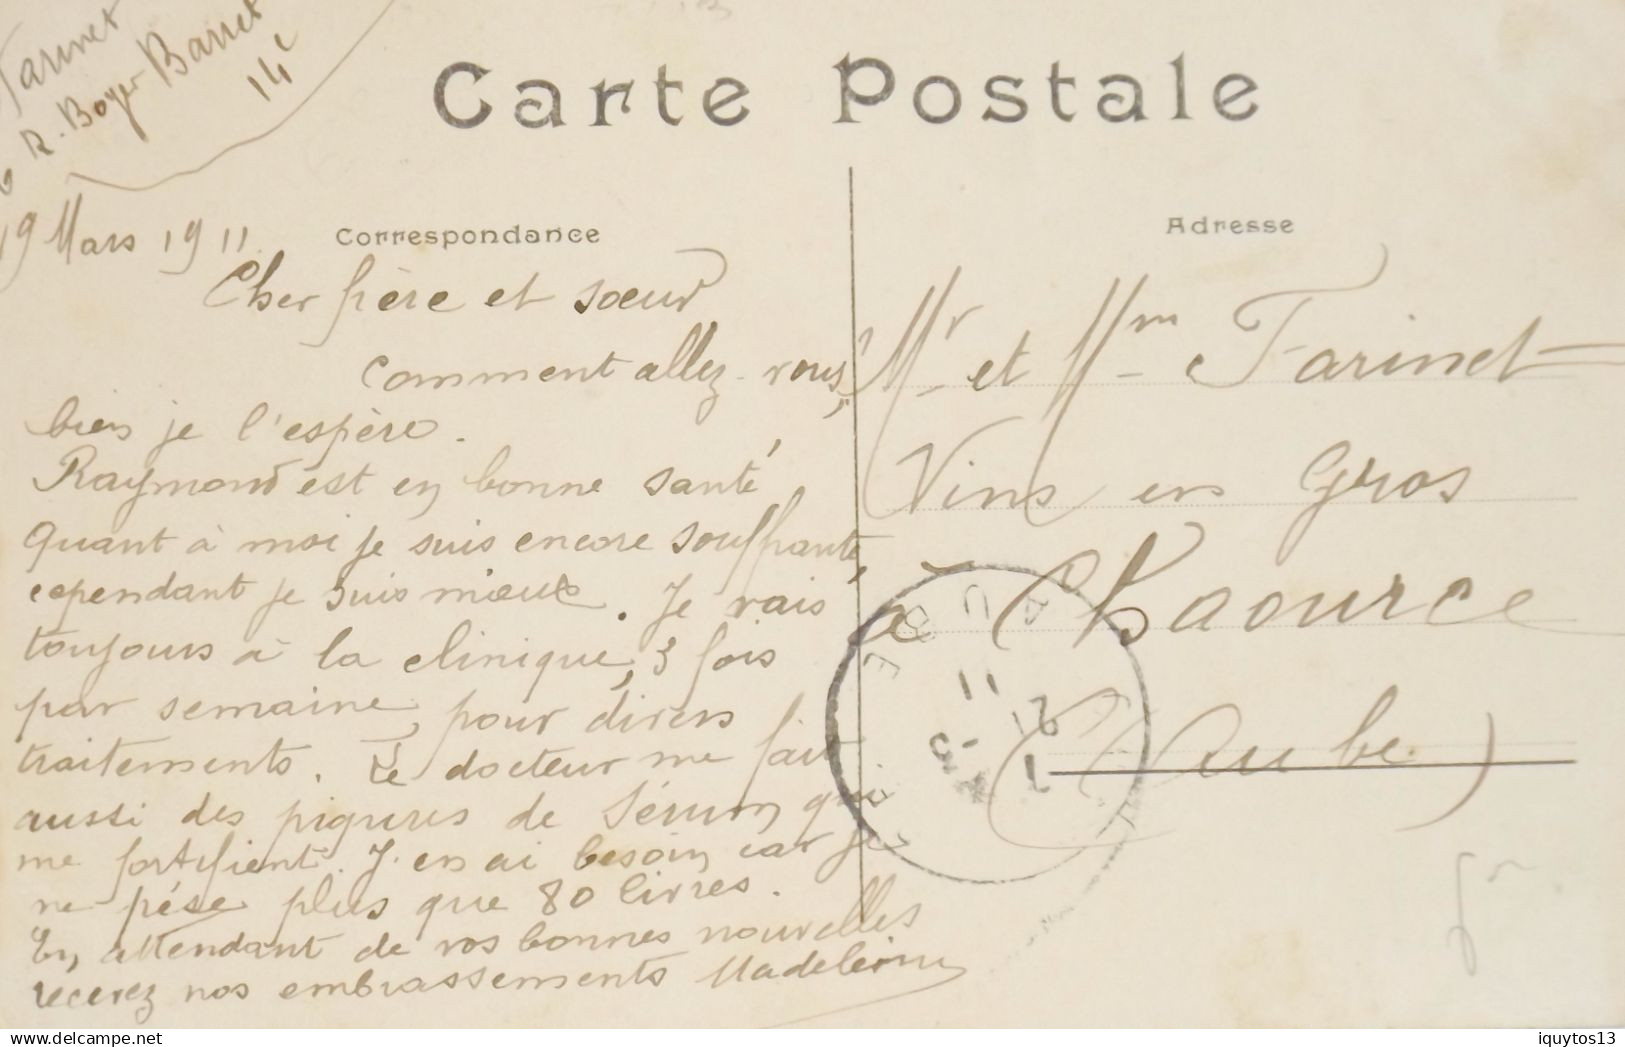 Farinet
6 R. Boyer Barret
14e
Carte Postale
19 Mars 1911
Correspondance
Cher frère et sœur
Comment allez-vous,
bien je l'espère.
Raymond est en bonne santé,
quant à moi je suis encore souffrante,
cependant je suis mieux. Je vais
toujours à la clinique, 3 fois
par semaine, pour divers
traitements. Le docteur me fait
aussi des piqures de Sérum qui
me fortifient. J'en ai besoin car je
ne pése plus que 80 livres.
En attendant de vos bonnes nouvelles
recevez nos embrassements Madeleine
Adresse
Mr et Mme Farinet
Vins en Gros
à Chaource
(Aube)
AUBE
11
iquytos13